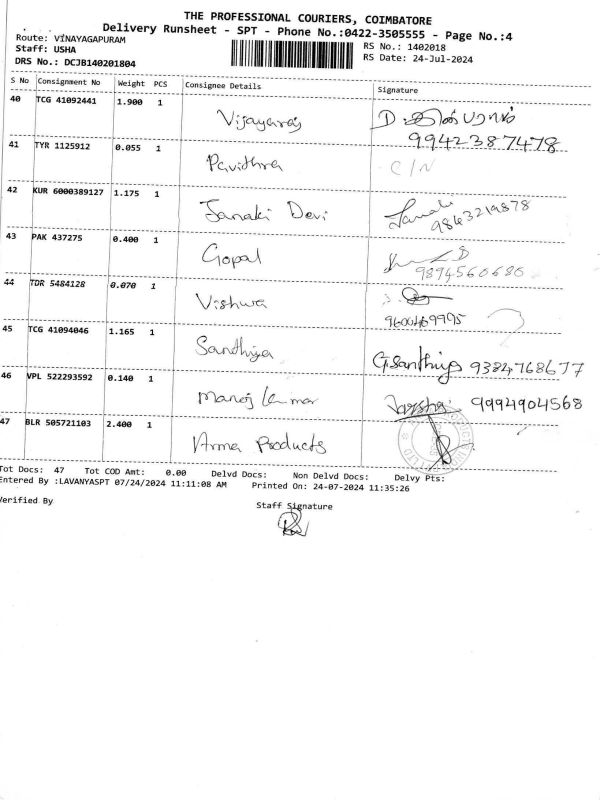 THE PROFESSIONAL COURIERS, COIMBATORE
Delivery Runsheet - SPT - Phone No.:0422-3505555 - Page No.:4
Route: VINAYAGAPURAM
Staff: USHA
DRS No.: DCJB140201804
RS No.: 1402018
RS Date: 24-Jul-2024
S No Consignment No Weight PCS Consignee Details Signature
40 TCG 41092441 1.900 1 Vijayaraj
9942387478
41 TYR 1125912 0.055 1 Pavithra C/N
42 KUR 6000389127 1.175 1 Janaki Devi 9843219878
43 PAK 437275 0.400 1 Gopal
9894560680
44 TDR 5484128 0.070 1 Vishwa
45 TCG 41094046 1.165 1 Sandhiya G.Santhiya 9384768677
46 VPL 522293592 0.140 1 Manoj Kumar 9994904568
47 BLR 505721103 2.400 1 Arma Products
Tot Docs: 47 Tot COD Amt: 0.00 Delvd Docs: Non Delvd Docs: Delvy Pts:
Entered By :LAVANYASPT 07/24/2024 11:11:08 AM Printed On: 24-07-2024 11:35:26
Verified By
Staff Signature